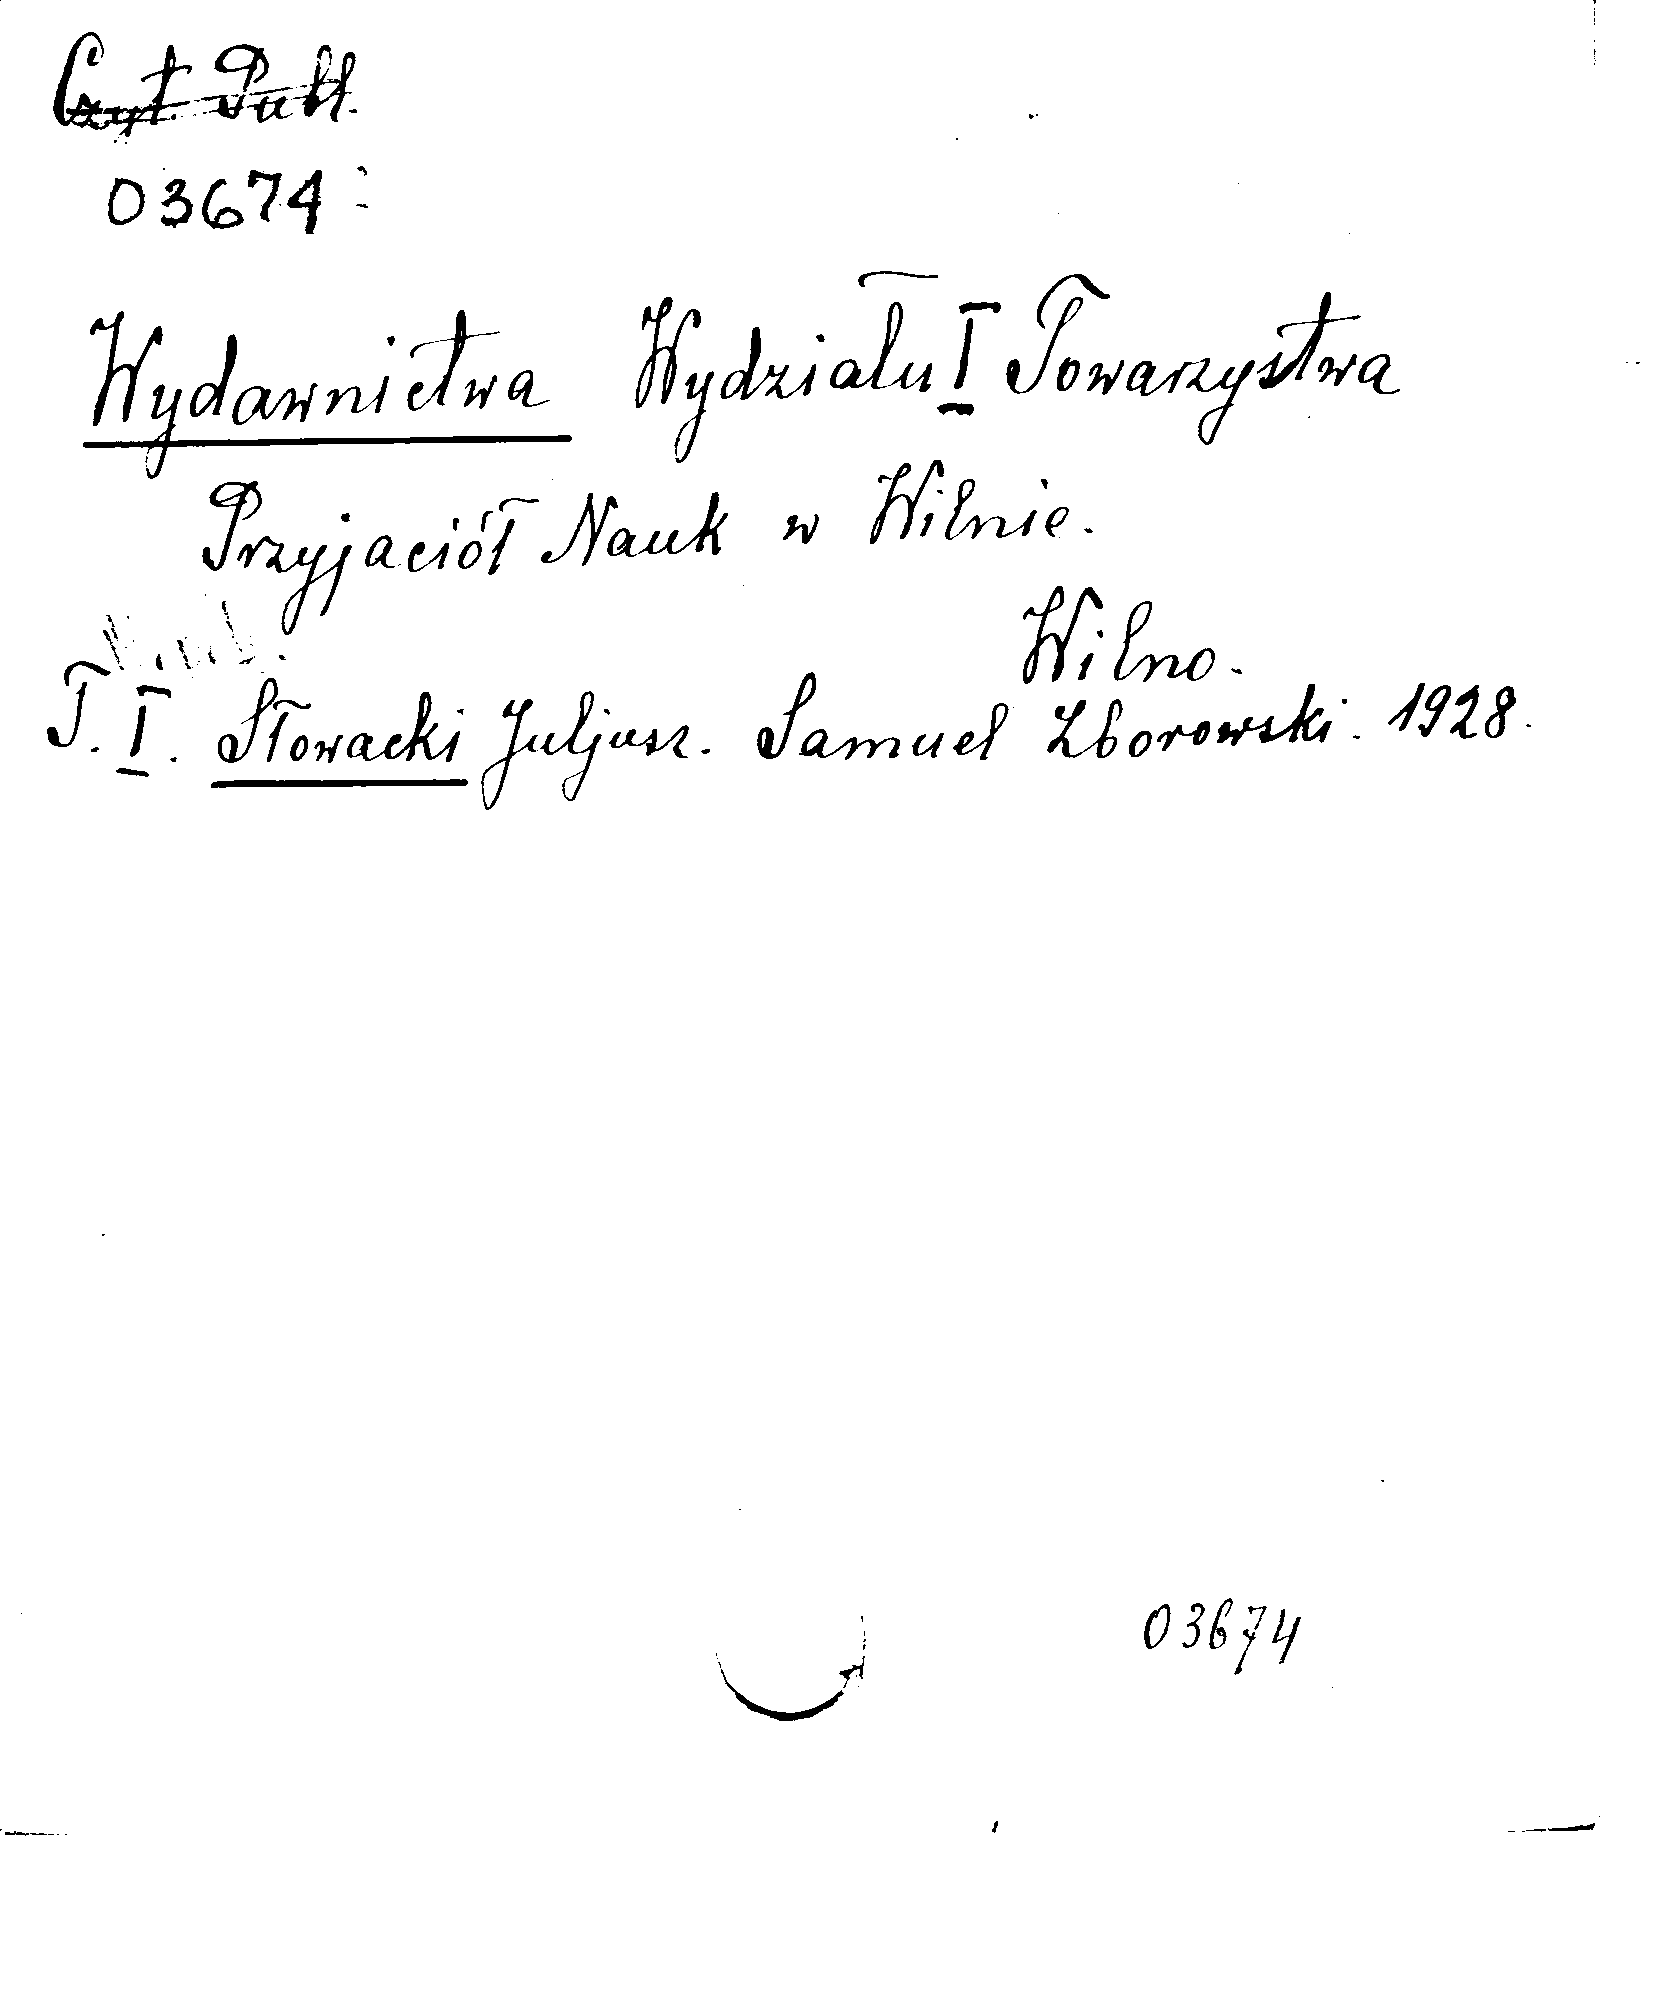 Czyt. Publ.
03674
Wydawnictwa Wydziału I Towarzystwa
Przyjaciół Nauk w Wilnie.
Wilno.
T. I. Słowacki Juljusz. Samuel Zborowski. 1928.
03674